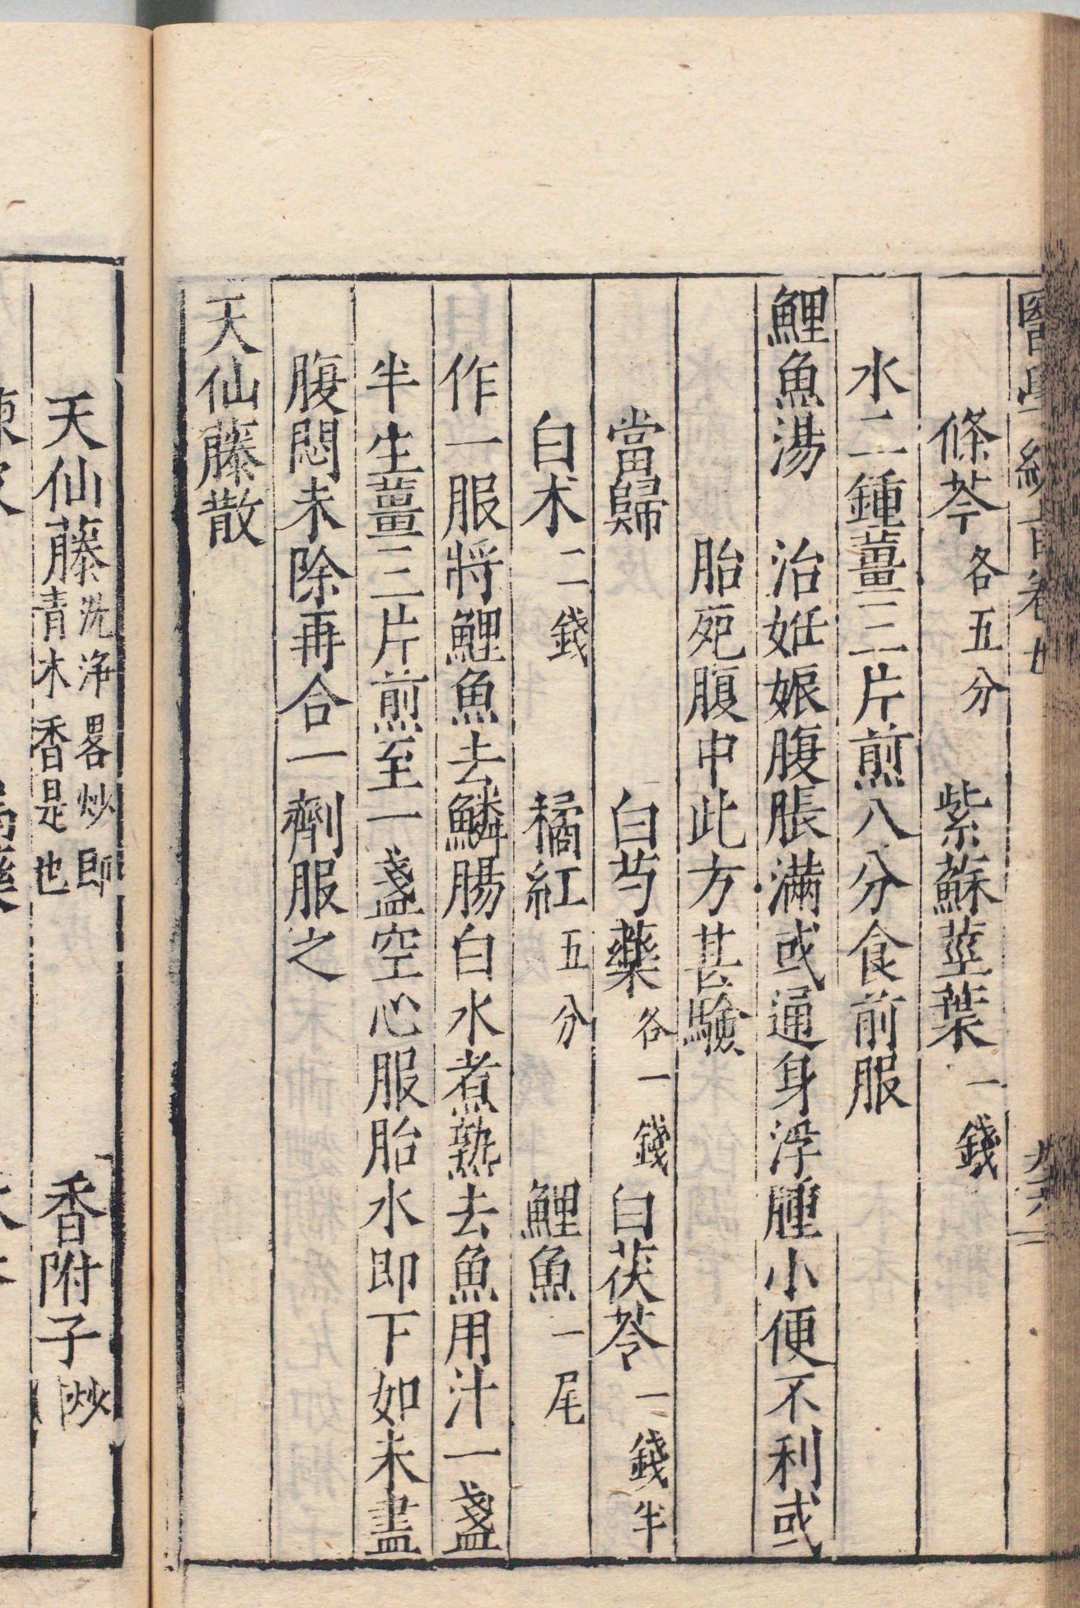 條芩各五分 紫蘇莖葉一錢
水二鍾薑三片煎八分食前服
鯉魚湯 治妊娠腹脹滿或通身浮腫小便不利或
胎死腹中此方甚驗
當歸 白芍藥各一錢 白茯苓一錢半
白朮二錢 橘紅五分 鯉魚一尾
作一服將鯉魚去鱗腸白水煮熟去魚用汁一盞
半生薑三片煎至一盞空心服胎水即下如未盡
腹悶未除再合一劑服之
天仙藤散
天仙藤洗净畧炒即青木香是也 香附子炒